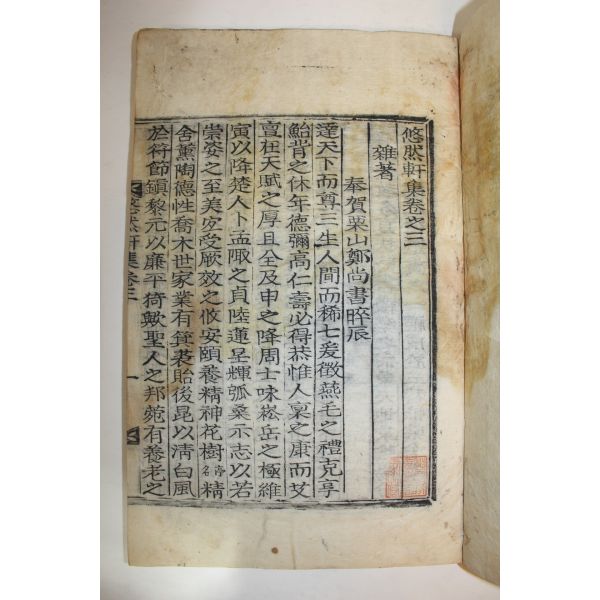 悠然軒集卷之三
雜著
奉賀栗山鄭尚書晬辰
達天下而尊三生人間而稀七爰徵燕毛之禮克享
鮐背之休年德彌高仁壽必得恭惟人稟之康而艾
亶在天賦之厚且全及申之降周士咏崧岳之極維
寅以降楚人卜孟陬之貞陸蓮呈輝弧桑示志以若
崇姿之至美宏受厥效之攸安頤養精神花樹洛名精
舍薰陶德性喬木世家業有箕裘貽後昆以淸白風
於符節鎭黎元以廉平猗歟聖人之邦菀有養老之
悠然軒集 卷三 一